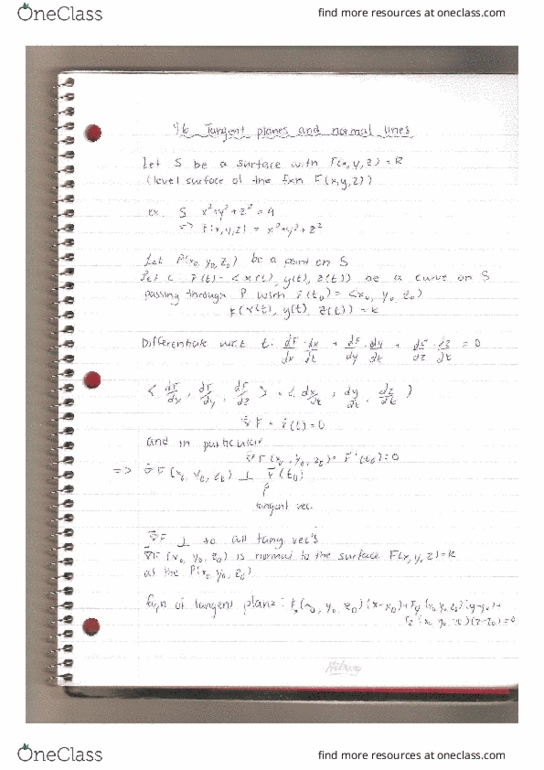 OneClass
find more resources at oneclass.com
9.6 Tangent planes and normal lines
Let S be a surface with F(x,y,z) = k
(level surface of the fxn F(x,y,z))
ex. S x²+y²+z² = 4
=> F(x,y,z) = x²+y²+z²
Let P(x₀, y₀, z₀) be a point on S
Let C r̄(t) = <x(t), y(t), z(t)> be a curve on S
passing through P with r̄(t₀) = <x₀, y₀, z₀>
F(x(t), y(t), z(t)) = k
Differentiate w.r.t t. dF/dx · dx/dt + dF/dy · dy/dt + dF/dz · dz/dt = 0
dF/dy , dF/dz > · < dx/dt , dy/dt , dz/dt )
∇F · r̄(t) = 0
and in particular
∇F (x₀, y₀, z₀) · r̄'(t₀) = 0
=> ∇F (x₀, y₀, z₀) ⊥ r̄'(t₀)
tangent vec.
∇F ⊥ to all tang vec's
∇F (x₀, y₀, z₀) is normal to the surface F(x,y,z)=k
at the P(x₀, y₀, z₀)
Eqn of tangent plane: Fx(x₀, y₀, z₀)(x-x₀) + Fy(x₀ y₀ z₀)(y-y₀) +
Fz(x₀ y₀ z₀)(z-z₀) = 0
OneClass
find more resources at oneclass.com